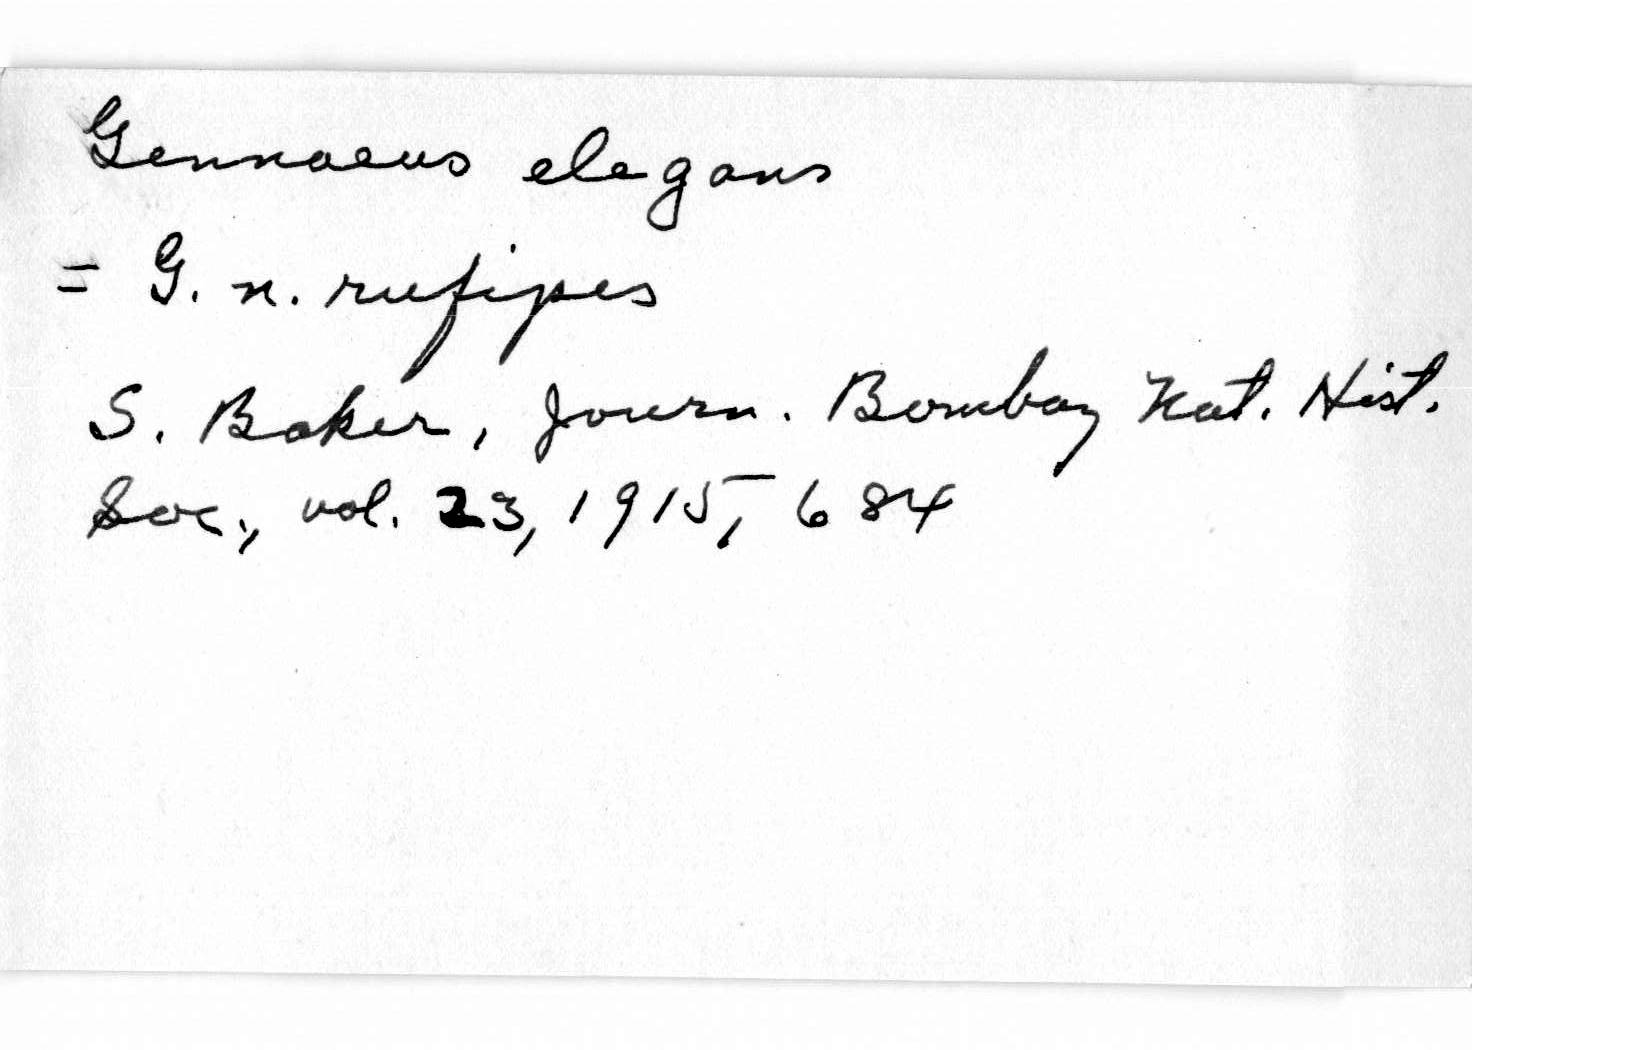 Gennaeus elegans
= G. n. rufipes
S. Baker, Journ. Bombay Nat. Hist.
Soc., vol. 23, 1915, 684